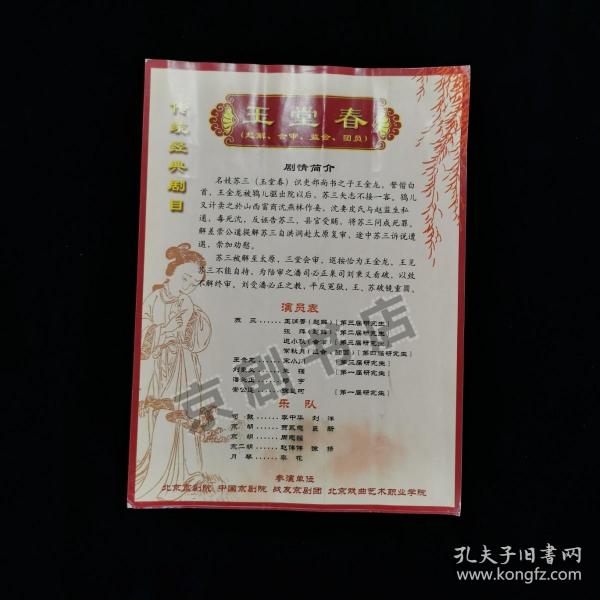 传统经典剧目
玉堂春
(起解、会审、监会、团圆)
剧情简介
名妓苏三(玉堂春)识吏部尚书之子王金龙,誓偕白
首,王金龙被鸨儿驱出院以后,苏三矢志不接一客,鸨儿
又计卖之於山西富商沈燕林作妾,沈妻皮氏与赵监生私
通,毒死沈,反诬告苏三,县官受贿,将苏三问成死罪。
解差崇公道提解苏三自洪洞赴太原复审,途中苏诉说遭
遇,崇加劝慰。
苏三被解至太原,三堂会审,巡按恰为王金龙。王见
苏三不能自持,为陪审之潘司必正臬司刘秉义看破,以致
不解终审,刘受潘必正之教,平反冤狱,王、苏破镜重圆。
演员表
苏三
[第三届研究生]
[第二届研究生]
[第三届研究生]
常秋月
[第四届研究生]
王金龙
宋小川
[第三届研究生]
[第一届研究生]
崇公道
[第一届研究生]
乐队
司鼓
李中华 刘洋
京胡
周志强
京二胡
赵伟伟
月琴
李花
参演单位
北京京剧院 中国京剧院 战友京剧团 北京戏曲艺术职业学院
京剧书店
孔夫子旧书网
www.kongfz.com